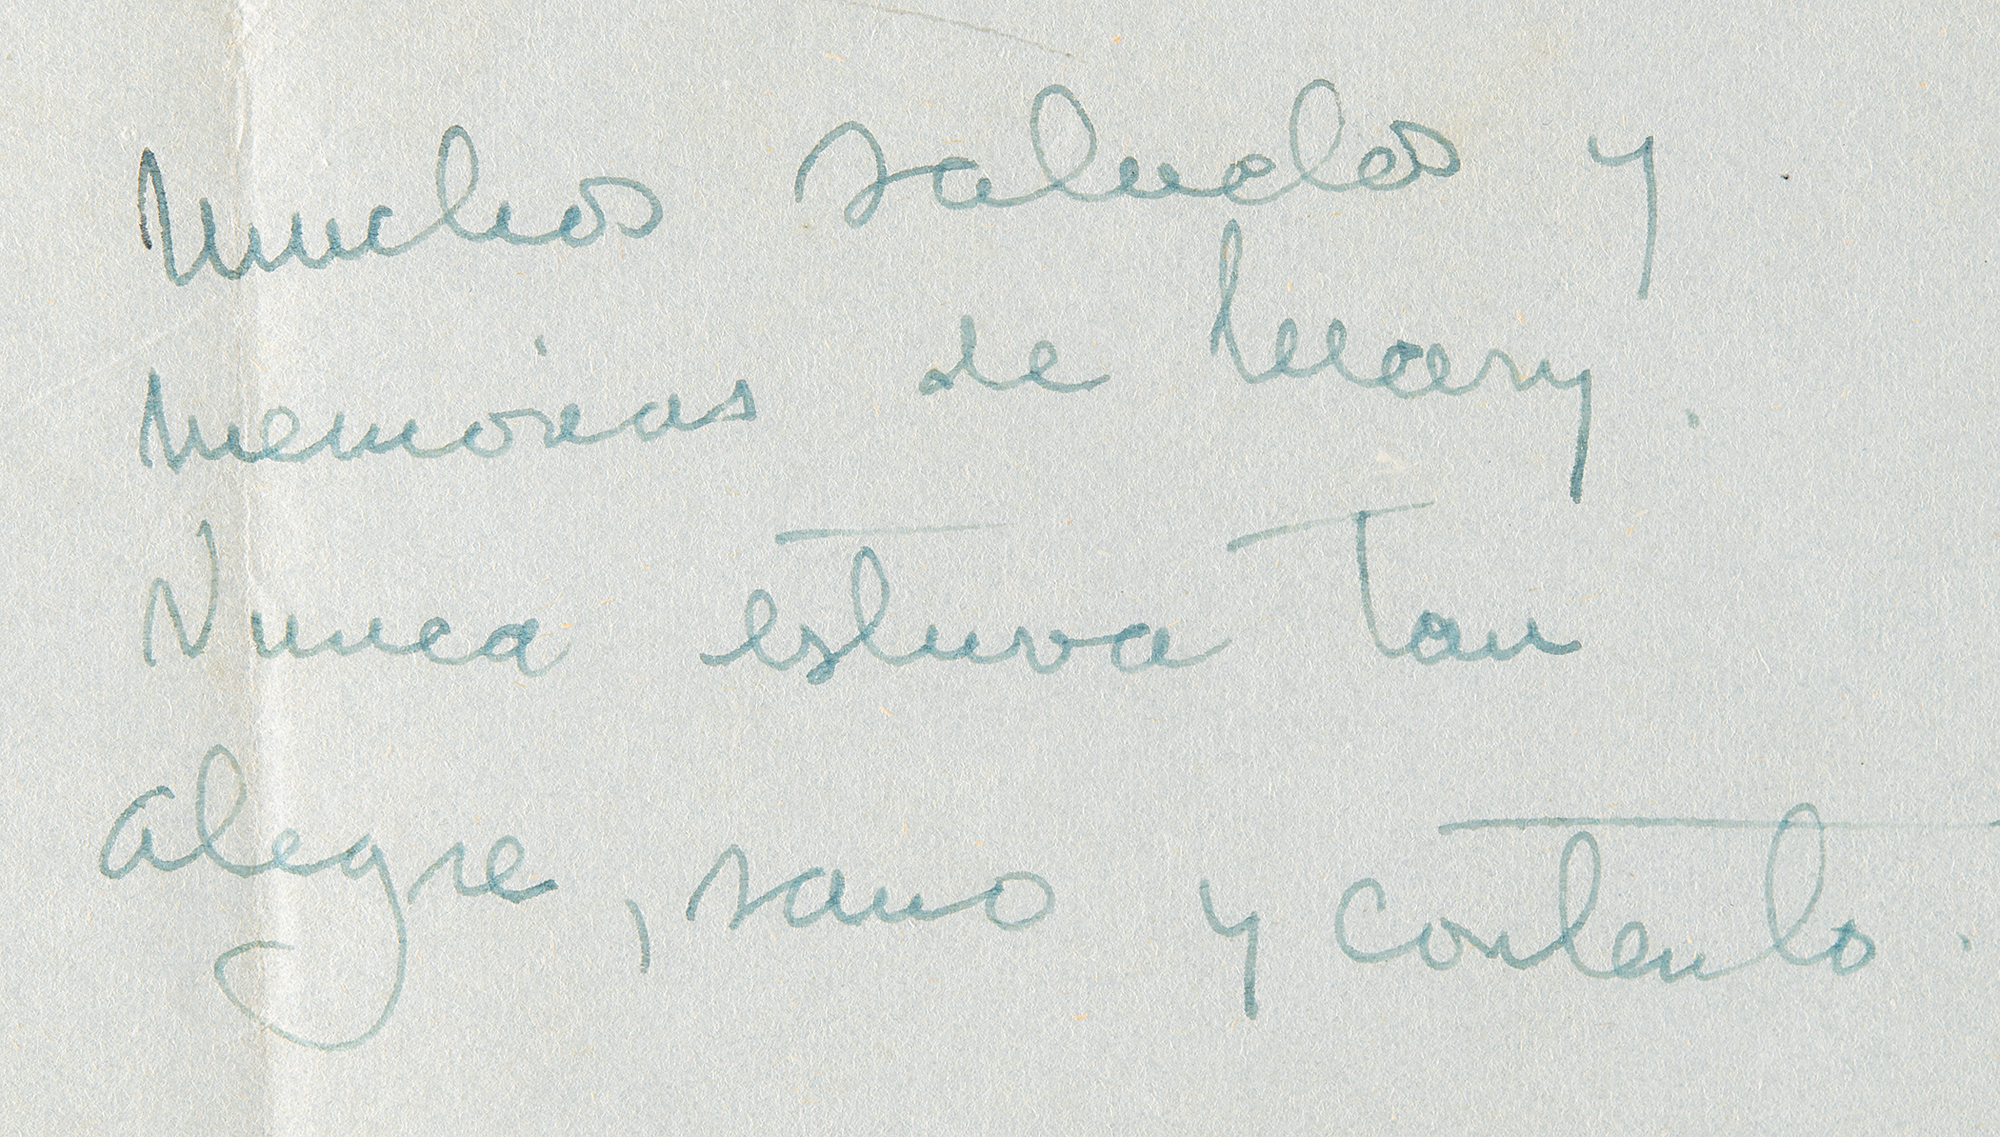 Muchos saludos y
memorias de Mary.
Nunca estuva tan
alegre, sano y contento.